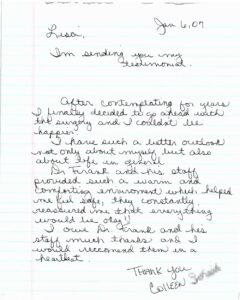 Jan 6, 07
Lisa,
I'm sending you my
testimonial.
After contemplating for years
I finally decided to go ahead with
the surgery and I couldn't be
happier.
I have such a better outlook
not only about myself, but also
about life in general.
Dr. Frank and his staff
provided such a warm and
comforting enviroment which helped
me feel safe, they constantly
reassured me that everything
would be okay!!
I owe Dr. Frank and his
staff much thanks and I
would recommend them in a
heartbeat.
THANK YOU
COLLEEN